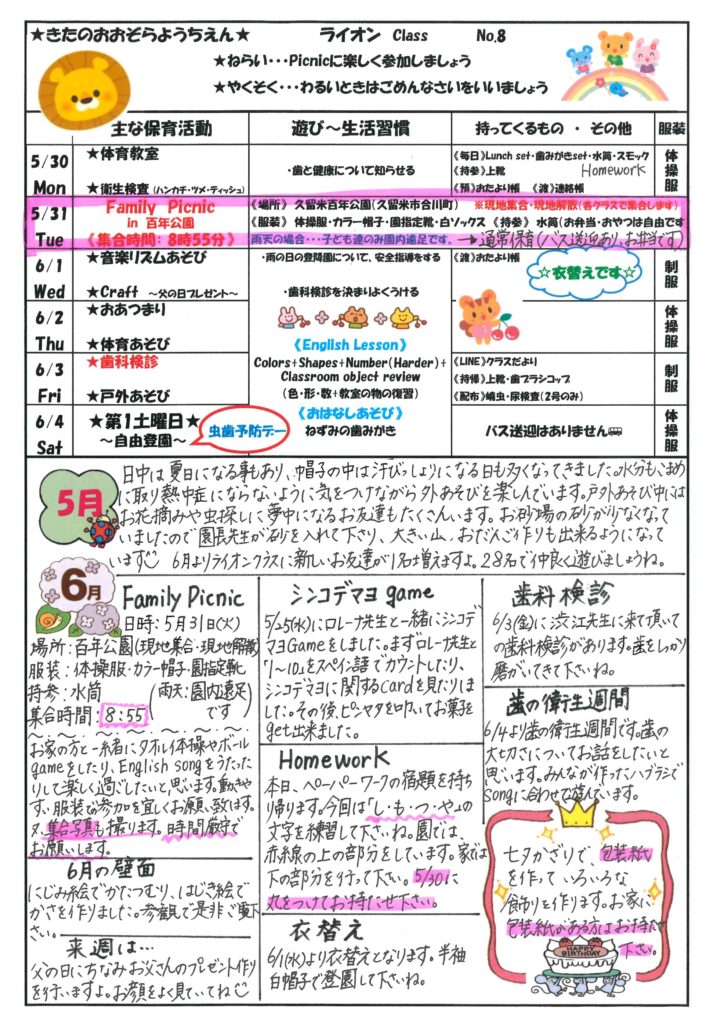 ★きたのおおぞらようちえん★　ライオン Class　No,8
★ねらい・・・Picnicに楽しく参加しましょう
★やくそく・・・わるいときはごめんなさいをいいましょう
主な保育活動　遊び～生活習慣　持ってくるもの ・ その他　服装
5/30 Mon
★体育教室
★衛生検査（ハンカチ・ツメ・ティッシュ）
・歯と健康について知らせる
《毎日》Lunch set・歯みがきset・水筒・スモック
《持参》上靴　Homework
《預》おたより帳　《渡》連絡帳
体操服
5/31 Tue
Family Picnic
in 百年公園
《集合時間：8時55分》
《場所》 久留米百年公園（久留米市合川町）　※現地集合・現地解散（各クラスで集合します）
《服装》 体操服・カラー帽子・園指定靴・白ソックス 《持参》 水筒（お弁当・おやつは自由です
雨天の場合・・・子ども達のみ園内遠足です。→通常保育（バス送迎あり、お弁当です）
6/1 Wed
★音楽リズムあそび
★Craft ～父の日プレゼント～
・雨の日の登降園について、安全指導をする
・歯科検診を決まりよくうける
《渡》おたより帳
☆衣替えです☆
制服
6/2 Thu
★おあつまり
★体育あそび
《English Lesson》
体操服
6/3 Fri
★歯科検診
★戸外あそび
Colors+Shapes+Number(Harder)+
Classroom object review
（色・形・数+教室の物の復習）
《LINE》クラスだより
《持帰》上靴・歯ブラシコップ
《配布》蟯虫・尿検査（2号のみ）
制服
6/4 Sat
★第1土曜日★
～自由登園～
虫歯予防デー
《おはなしあそび》
ねずみの歯みがき
バス送迎はありません
体操服
5月
日中は夏日になる事もあり、帽子の中は汗びっしょりになる日も多くなってきました。水分もこまめ
に取り熱中症にならないように気をつけながら外あそびを楽しんでいます。戸外あそび中には
お花摘みや虫探しに夢中になるお友達もたくさんいます。お砂場の砂が少なくなって
いましたので園長先生が砂を入れて下り、大きい山、おだんご作りも出来るようになって
います 6月よりライオンクラスに新しいお友達が1名増えますよ。28名で仲良く遊びましょうね。
6月
Family Picnic
日時：5月31日(火)
場所：百年公園(現地集合・現地解散)
服装：体操服・カラー帽子・園指定靴
持参：水筒（雨天：園内遠足です）
集合時間：8:55
お家の方と一緒にタオル体操やボール
gameをしたり、English songをうたった
りして楽しく過ごしたいと思います。動きや
すい服装で参加を宜しくお願い致します。
又、集合写真も撮ります。時間厳守で
お願いします。
6月の壁面
にじみ絵でかたつむり、はじき絵で
かさを作りました。参観で是非ご覧下
さい。
来週は…
父の日にちなみお父さんのプレゼント作り
を行いますよ。お顔をよく見ていてね
シンコデマヨ game
5/25(水)にロレーナ先生と一緒にシンコデ
マヨGameをしました。まずロレーナ先生と
1～10をスペイン語でカウントしたり、
シンコデマヨに関するcardを見たりしま
した。その後、ピニャタを叩いてお菓子を
get出来ました。
Homework
本日、ペーパーワークの宿題を持ち
帰ります。今回は「し・も・つ・や」の
文字を練習して下さいね。園では、
赤線の上の部分をしています。家では
下の部分を行って下さい。5/30に
丸をつけてお持たせ下さい。
衣替え
6/1(水)より衣替えとなります。半袖
白帽子で登園して下さいね。
歯科検診
6/3(金)に渋江先生に来て頂いて
の歯科検診があります。歯をしっかり
磨いてきて下さいね。
歯の衛生週間
6/4より歯の衛生週間です。歯の
大切さについてお話をしたいと
思います。みんなが作ったハブラシで
songに合わせて遊んでいます。
七夕かざりで、包装紙
を作っていろいろな
飾りを作ります。お家に
包装紙がある方はお持たせ
下さい。
HAPPY BIRTHDAY